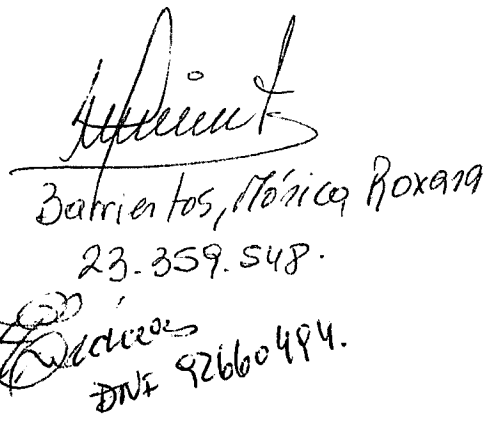 Barrientos, Mónica Roxana
23.359.548.
DNI 92660494.